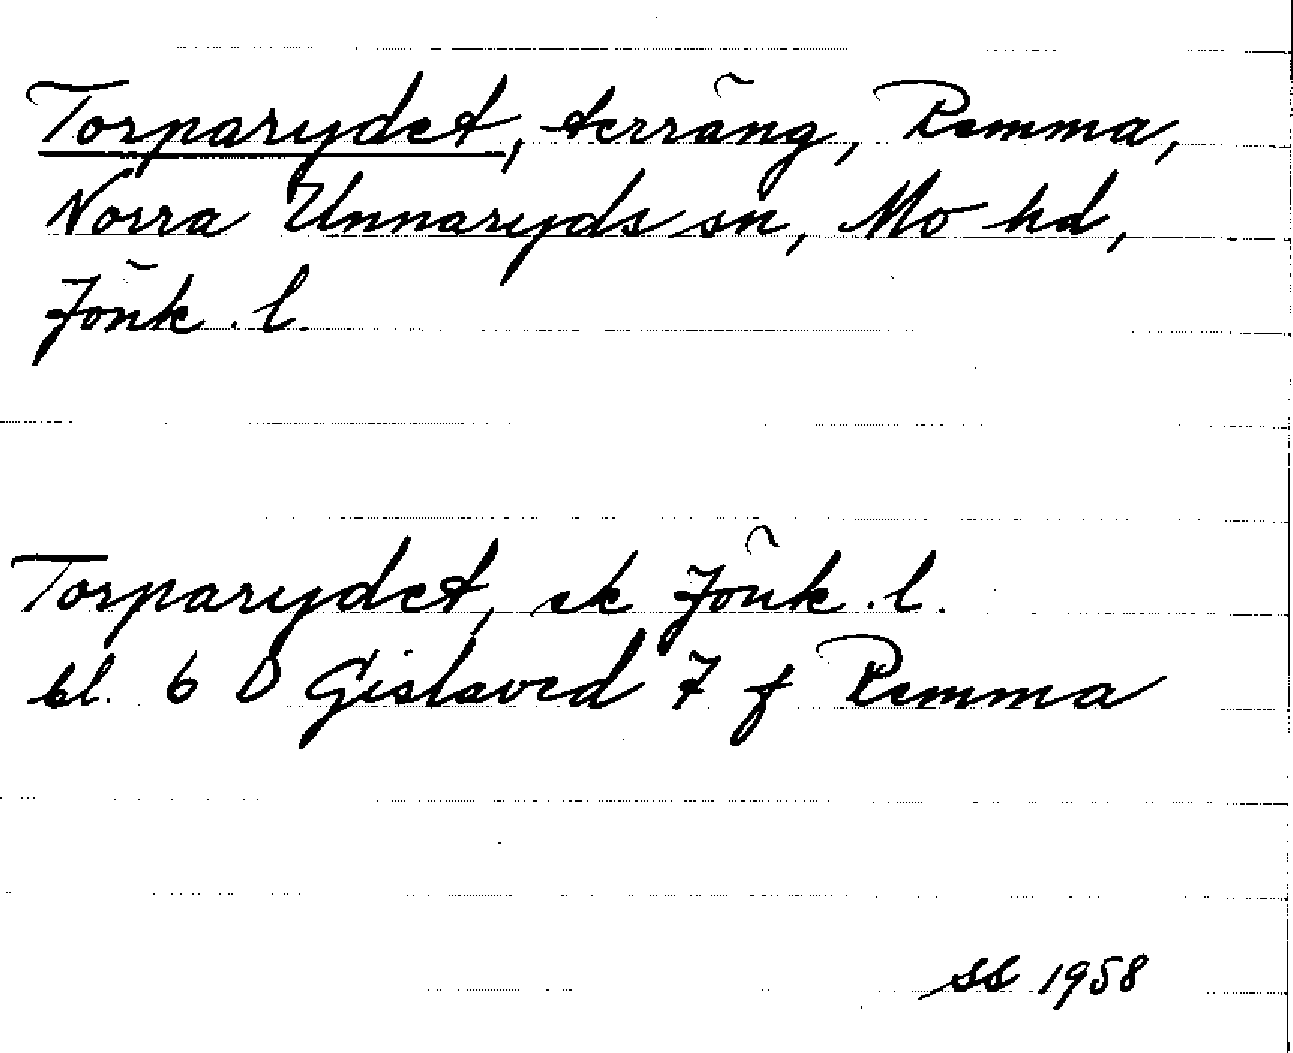 Torparydet, terräng, Remma,
Norra Unnaryds sn, Mo hd,
Jönk. l.
Torparydet, ek Jönk. l.
bl. 6 D Gislaved 7 f Remma
SS 1958